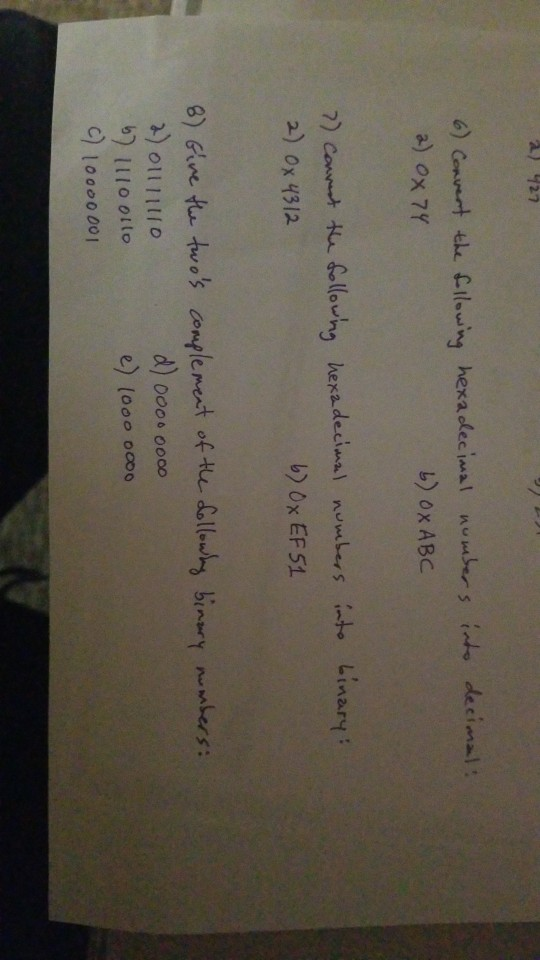 a) 427
6) Convert the following hexadecimal numbers into decimal:
a) 0x74 b) 0xABC
7) Convert the following hexadecimal numbers into binary:
a) 0x4312 b) 0xEF51
8) Give the two's complement of the following binary numbers:
a) 01111110 d) 00000000
b) 11100110 e) 10000000
c) 10000001